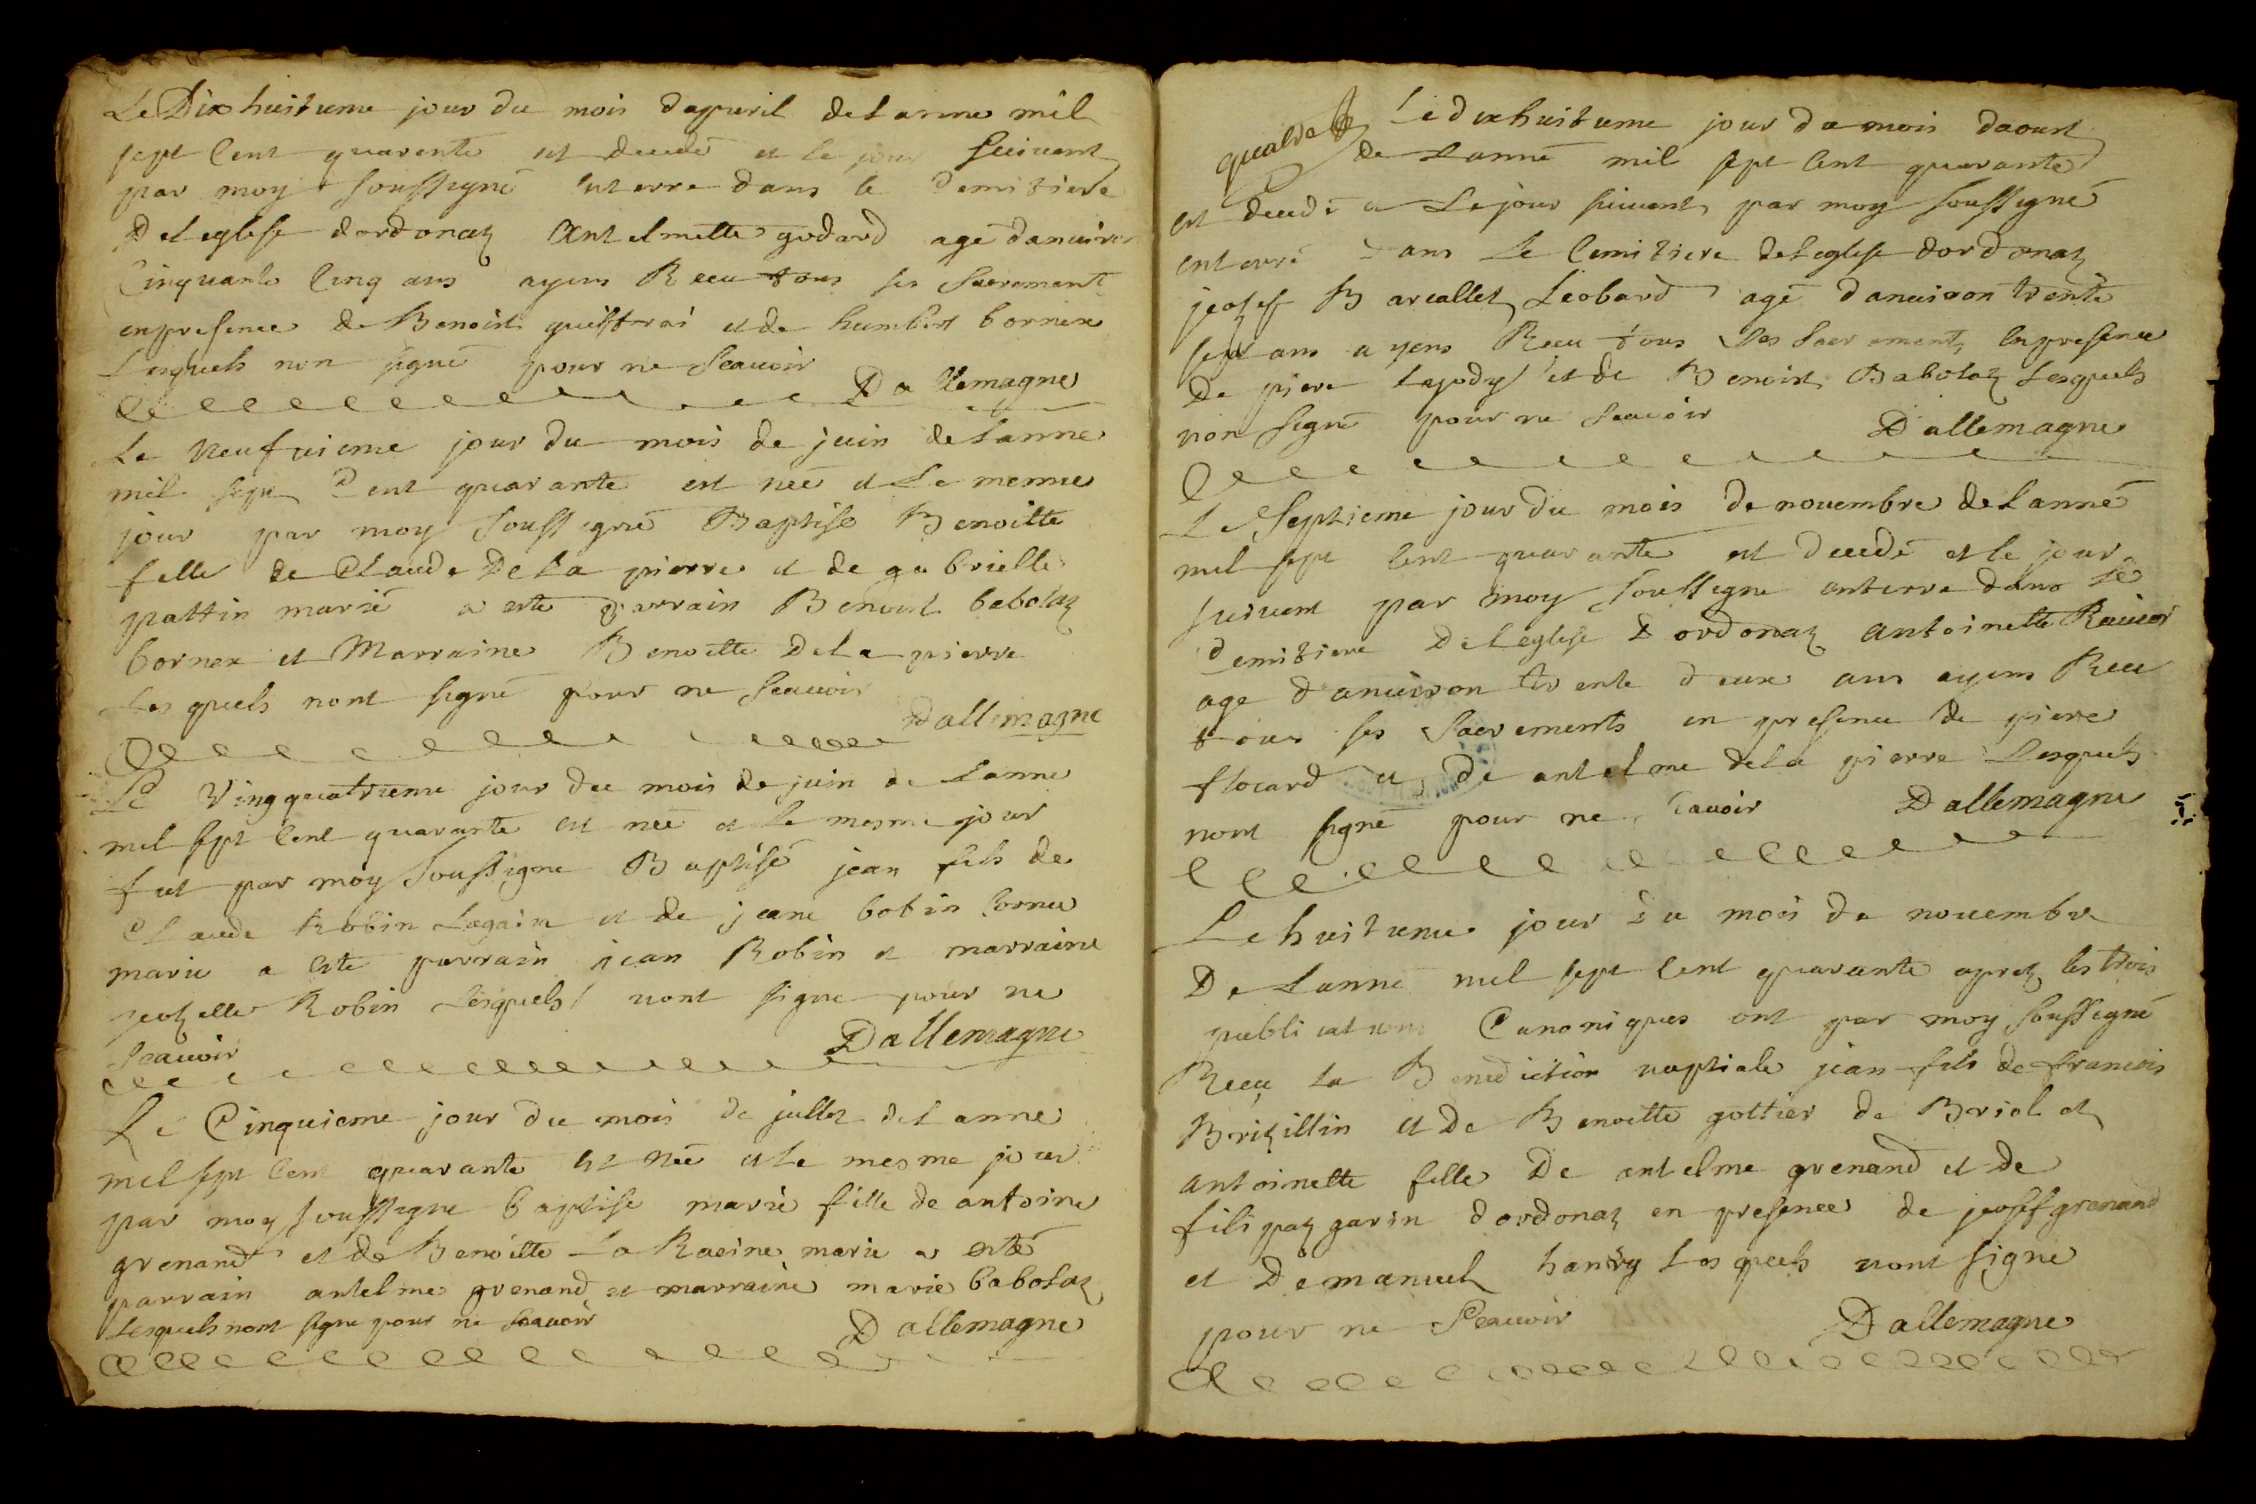 Le Dixhuitieme jour du mois dapuril delanne mil
sept Cent quarente est decedé et le jour Suivent
par moy soussigné enterre dans le Cemitiere
De leglise dordonaz Antelmette godard agé danuiron
Cinquante Cinq ans ayens Receu tous ses Sacrements
enpresence de Benoist guiffrai et de humbert bornex
Lesquels non signé pour ne Scauoir
Dallemagne
Le neufuieme jour du mois de juin delanne
mil sept Cent quarante est neé et Le mesme
jour par moy soussigné Baptise Benoitte
fille de Claude De la pierre et de gabrielle
pattin marié a esté parrain Benoist babolaz
bornex et Marraine Benoitte Dela pierre
Lesquels nont signé pour ne Scauoir
Dallemagne
Le Vingquatrieme jour du mois de juin de Lanne
mil sept Cent quarante est neé et le mesme jour
fut par moy soussigne Baptisé jean fils de
Claude Robin Lagain et de jeane botin Cornu
marie a esté parrain jean Robin et marraine
Robin Lesquels nont signe pour ne
Scauoir
Dallemagne
Le Cinquieme jour du mois de jullet delanne
mil sept Cent quarante est neé et Le mesme jour
par moy soussigne baptise marie fille de antoine
grenand et de Benoitte La Racine marie a esté
parrain antelme grenand et marraine marie babolaz
Lesquels nont signe pour ne Scauoir
Dallemagne
Le dixhuitieme jour du mois daoust
de Lanné mil sept Cent quarante
est decedé et Le jour suivent par moy soussigné
enterré dans Le Cemitiere deleglise dordonaz
joseff Barcallet Leobard agé danuiron trente
sept ans ayens Receu tous Ses Sacrements enpresence
De piere Lajody et de Benoist Babolaz Lesquels
non signé pour ne Scauoir
Dallemagne
Le Septieme jour du mois de nouembre delanné
mil sept Cent quarante est decedé et le jour
suivent par moy soussigne anterre dans Le
Cemitiere De leglise Dordonaz antoinette Rauior
age danuiron trente deux ans ayens Receu
tous ses Sacrements en presence de piere
flocard et De antelme dela pierre Lesquels
nont signé pour ne Scauoir
Dallemagne
Le huitieme jour du mois de nouembre
De Lanné mil sept Cent quarante aprez les trois
publications Canoniques ont par moy soussigné
Receu La Benediction nuptiale jean fils de francois
Brizillin et De Benoitte gottier de Briel et
antoinette fille De antelme grenand et de
filipaz garin dordonaz en presence de joseff grenand
et Demanuel hanry Lesquels nont signe
pour ne Scauoir
Dallemagne